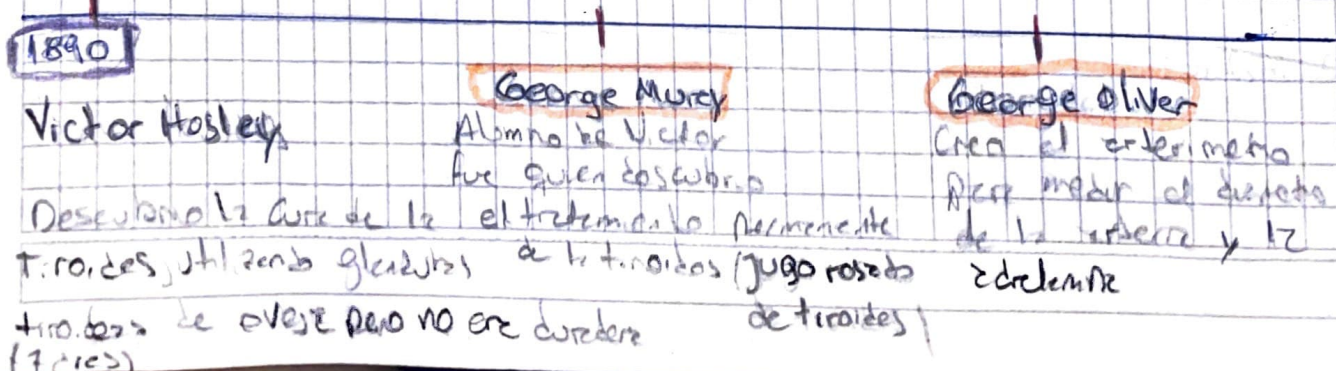 1890
Victor Hosley
Descubrio la cura de la
tiroides, utilizando glandulas
tiroideas de oveja pero no era duradera
George Murey
Alumno de Victor
fue quien descubrio
el tratamiento permanente
de la tiroides (jugo rosado
de tiroides)
George Oliver
Crea el arterimetro
para medir el diametro
de la arteria y la
adrelamina